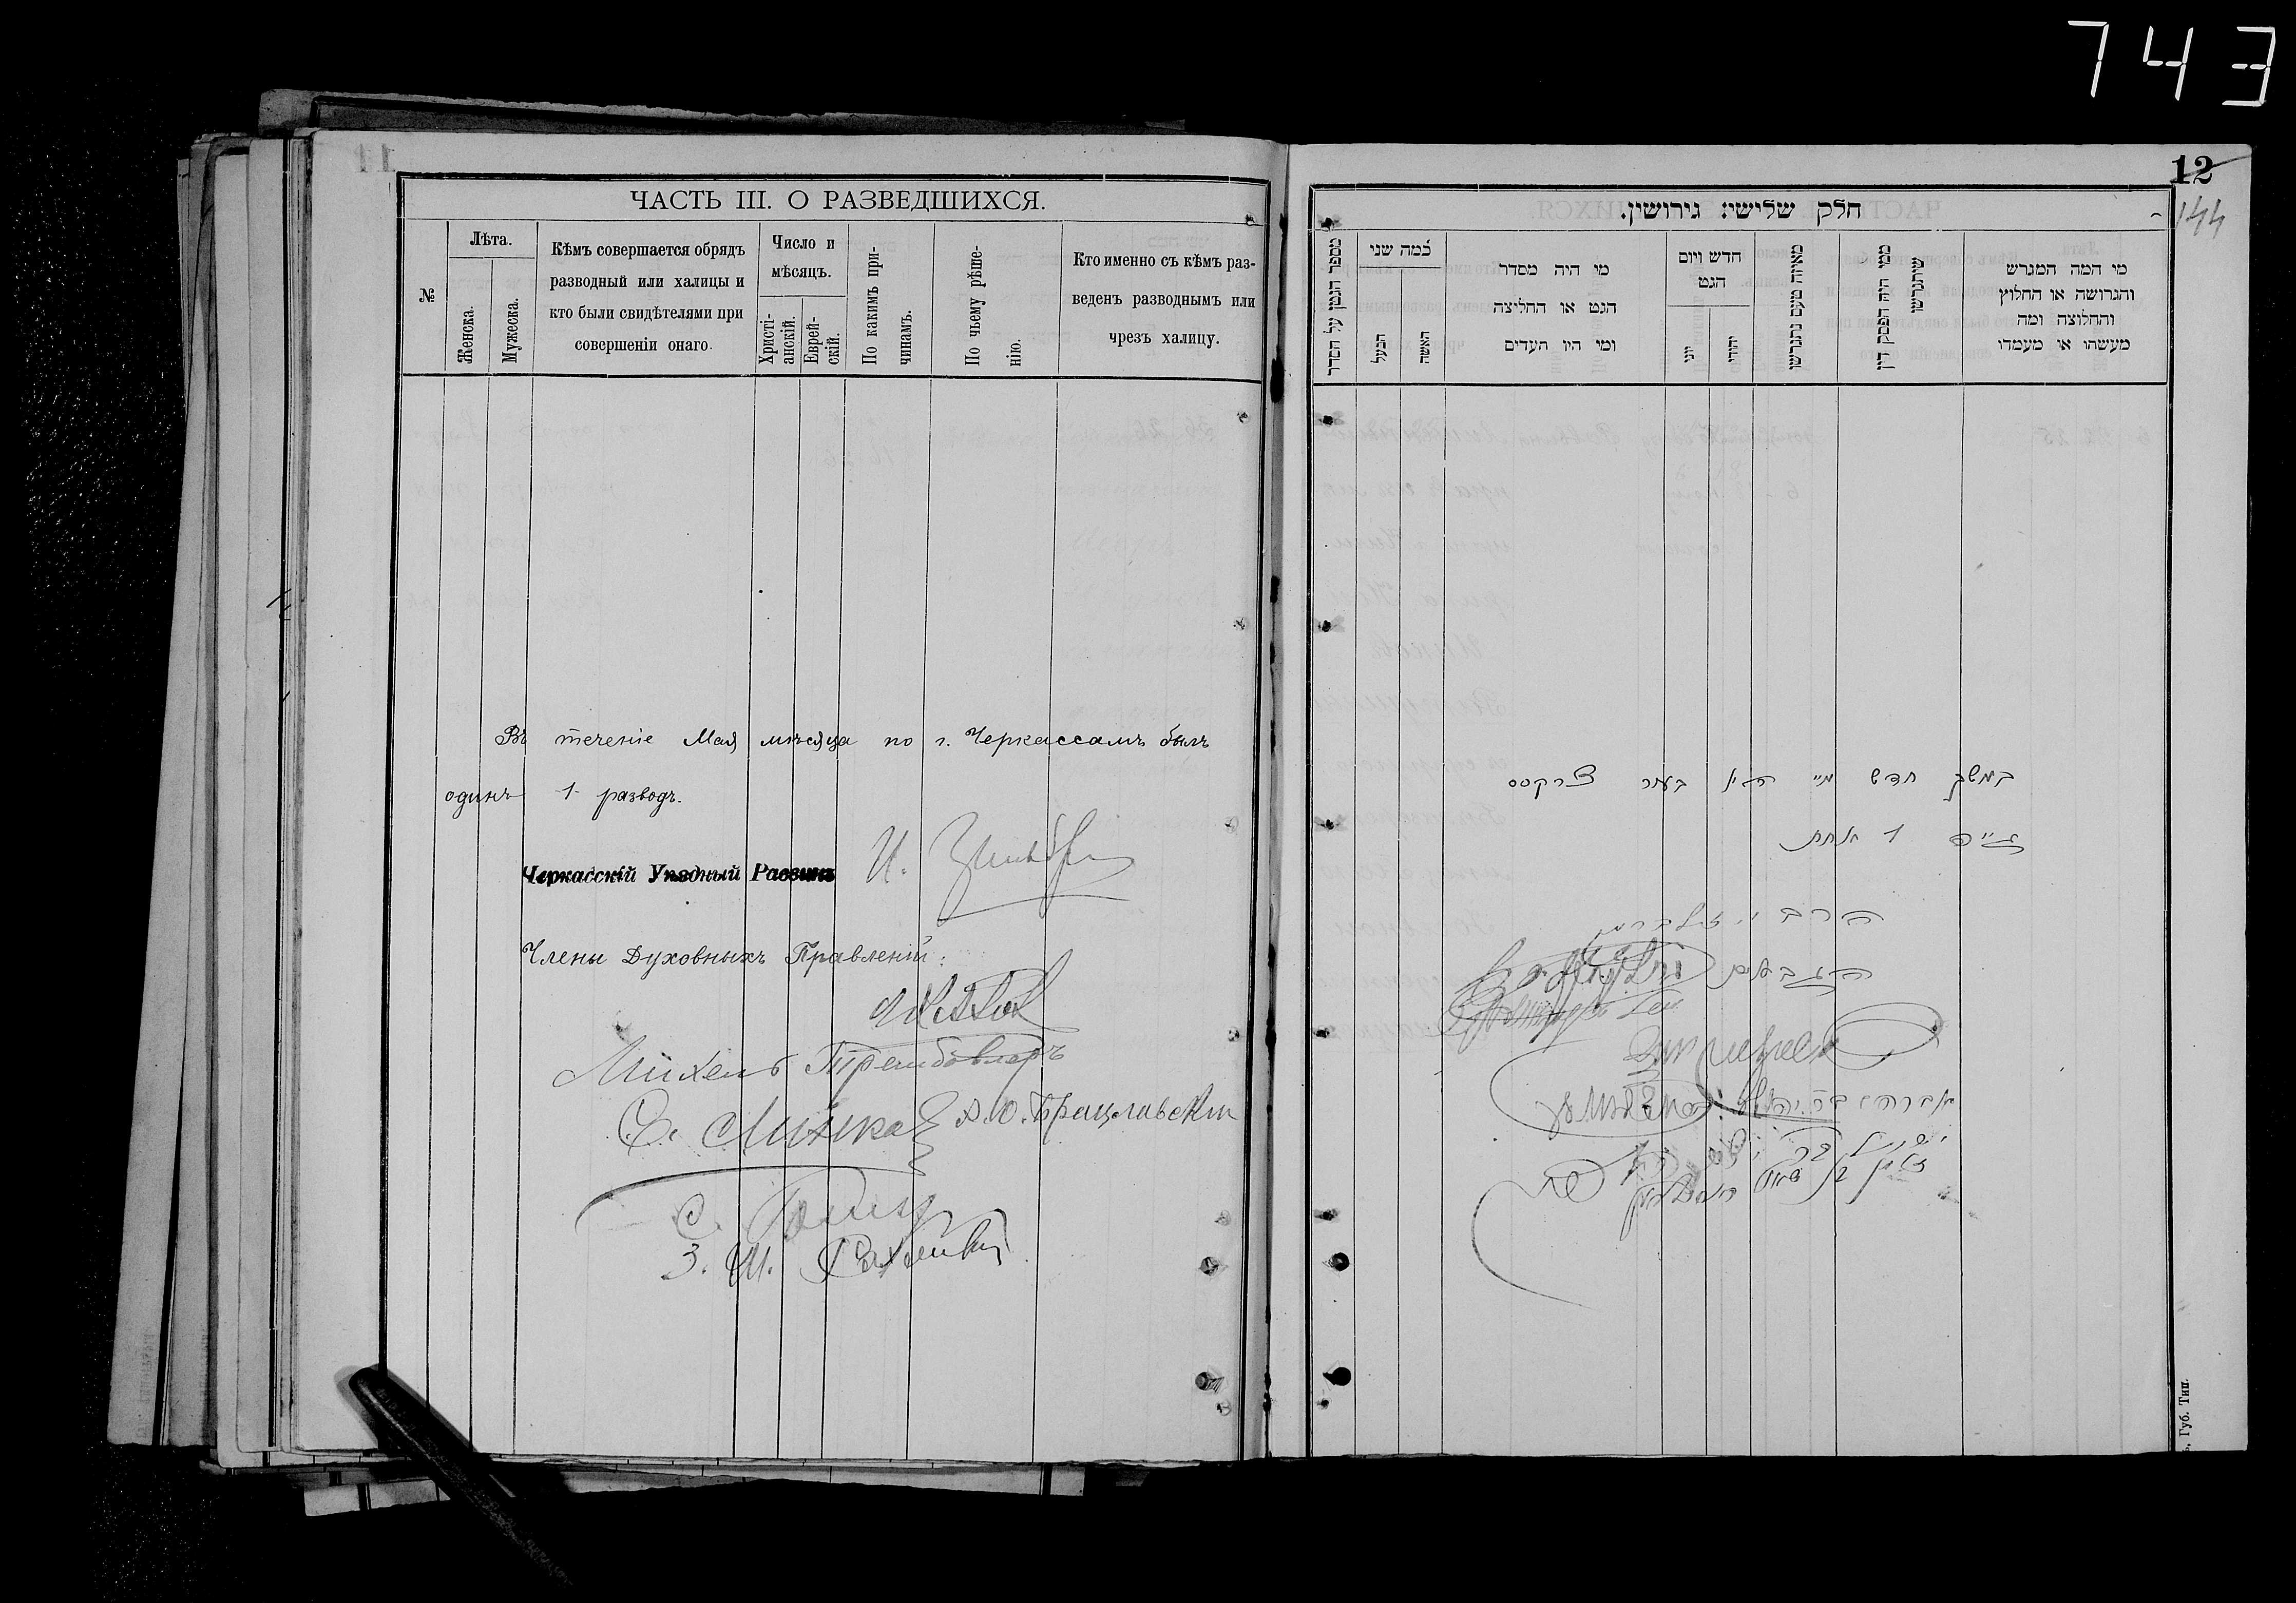 743
ЧАСТЬ III. О РАЗВЕДШИХСЯ.
№
Лѣта.
Женска.
Мужеска.
Кѣмъ совершается обрядъ
разводный или халицы и
кто были свидѣтелями при
совершеніи онаго.
Число и
мѣсяцъ.
Христі-
анскій.
Еврей-
скій.
По какимъ при-
чинамъ.
По чьему рѣше-
нію.
Кто именно съ кѣмъ раз-
веденъ разводнымъ или
чрезъ халицу.
Въ теченіе Мая мѣсяца по г. Черкассамъ былъ
одинъ 1 разводъ.
Черкасскій Уѣздный Раввинъ И.
Члены Духовныхъ Правленій:
Михель Трембовлеръ
С. А. Ю. Брацлавскій
С.
З. Ш.
12
144
חלק שלישי: גירושין.
מספר הגטין על הסדר
כמה שני
הבעל
האשה
מי היה מסדר
הגט או החליצה
ומי היו העדים
חדש ויום
הגט
יוני
יהודי
מאיזה טעם נתגרשו
ממי היה הפסק דין
שיתגרשו
מי המה המגרש
והגרושה או החלוץ
והחלוצה ומה
מעשהו או מעמדו
במשך חדש מיי הי' בעיר צערקסס
1 אחת
הרב י זילבערמן
הגבאים
ь, Губ. Тип.